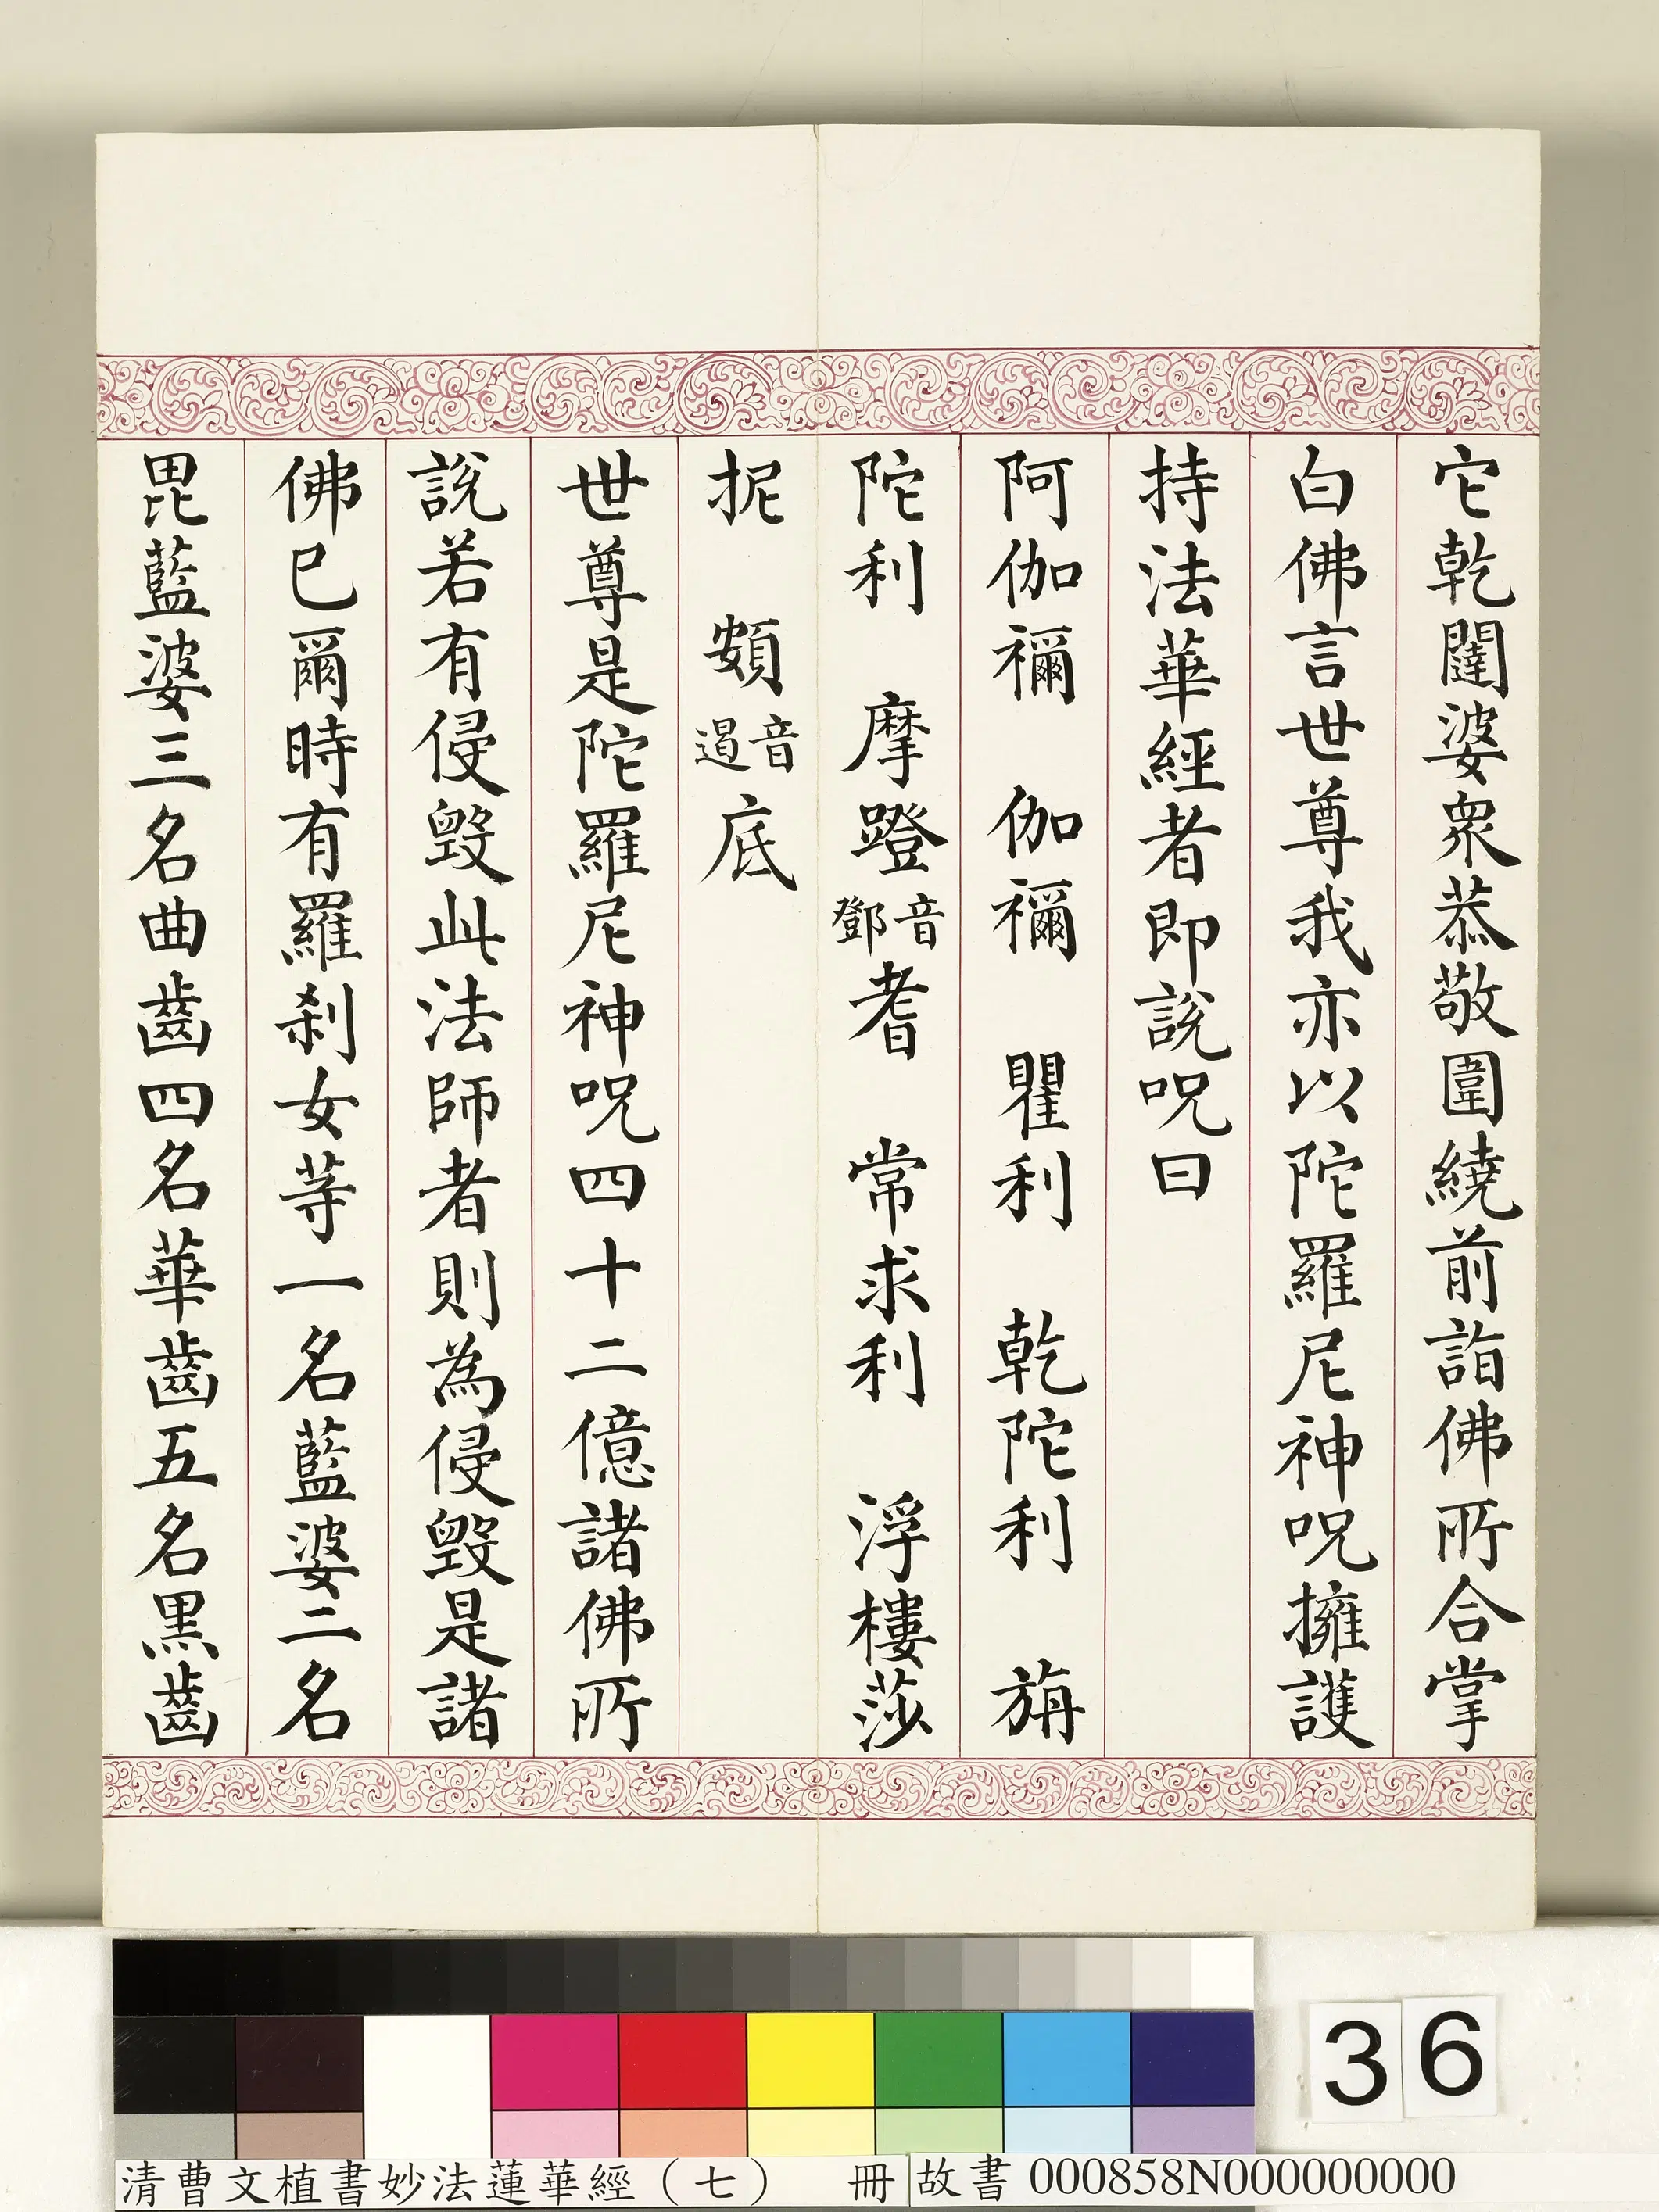 它乾闥婆衆恭敬圍繞前詣佛所合掌
白佛言世尊我亦以陀羅尼神呪擁護
持法華經者即說呪曰
阿伽禰　伽禰　瞿利　乾陀利　旃
陀利　摩蹬音鄧耆　常求利　浮樓莎
抳　頞音遏底
世尊是陀羅尼神呪四十二億諸佛所
說若有侵毀此法師者則為侵毀是諸
佛已爾時有羅剎女等一名藍婆二名
毘藍婆三名曲齒四名華齒五名黑齒
36
清曹文植書妙法蓮華經（七）　冊
故書000858N000000000